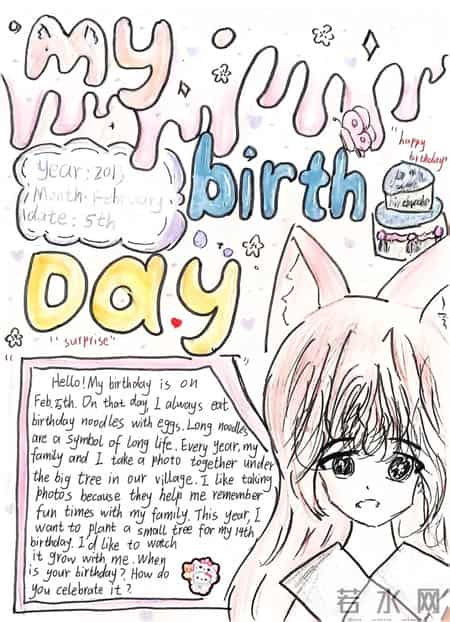 My
birth
Day
Year: 201
Month: February
date: 5th
"happy
birthday"
"surprise"
Hello! My birthday is on
Feb.5th. On that day, I always eat
birthday noodles with eggs. Long noodles
are a symbol of long life. Every year, my
family and I take a photo together under
the big tree in our village. I like taking
photos because they help me remember
fun times with my family. This year, I
want to plant a small tree for my 14th
birthday. I'd like to watch
it grow with me. When
is your birthday? How do
you celebrate it?
若水网